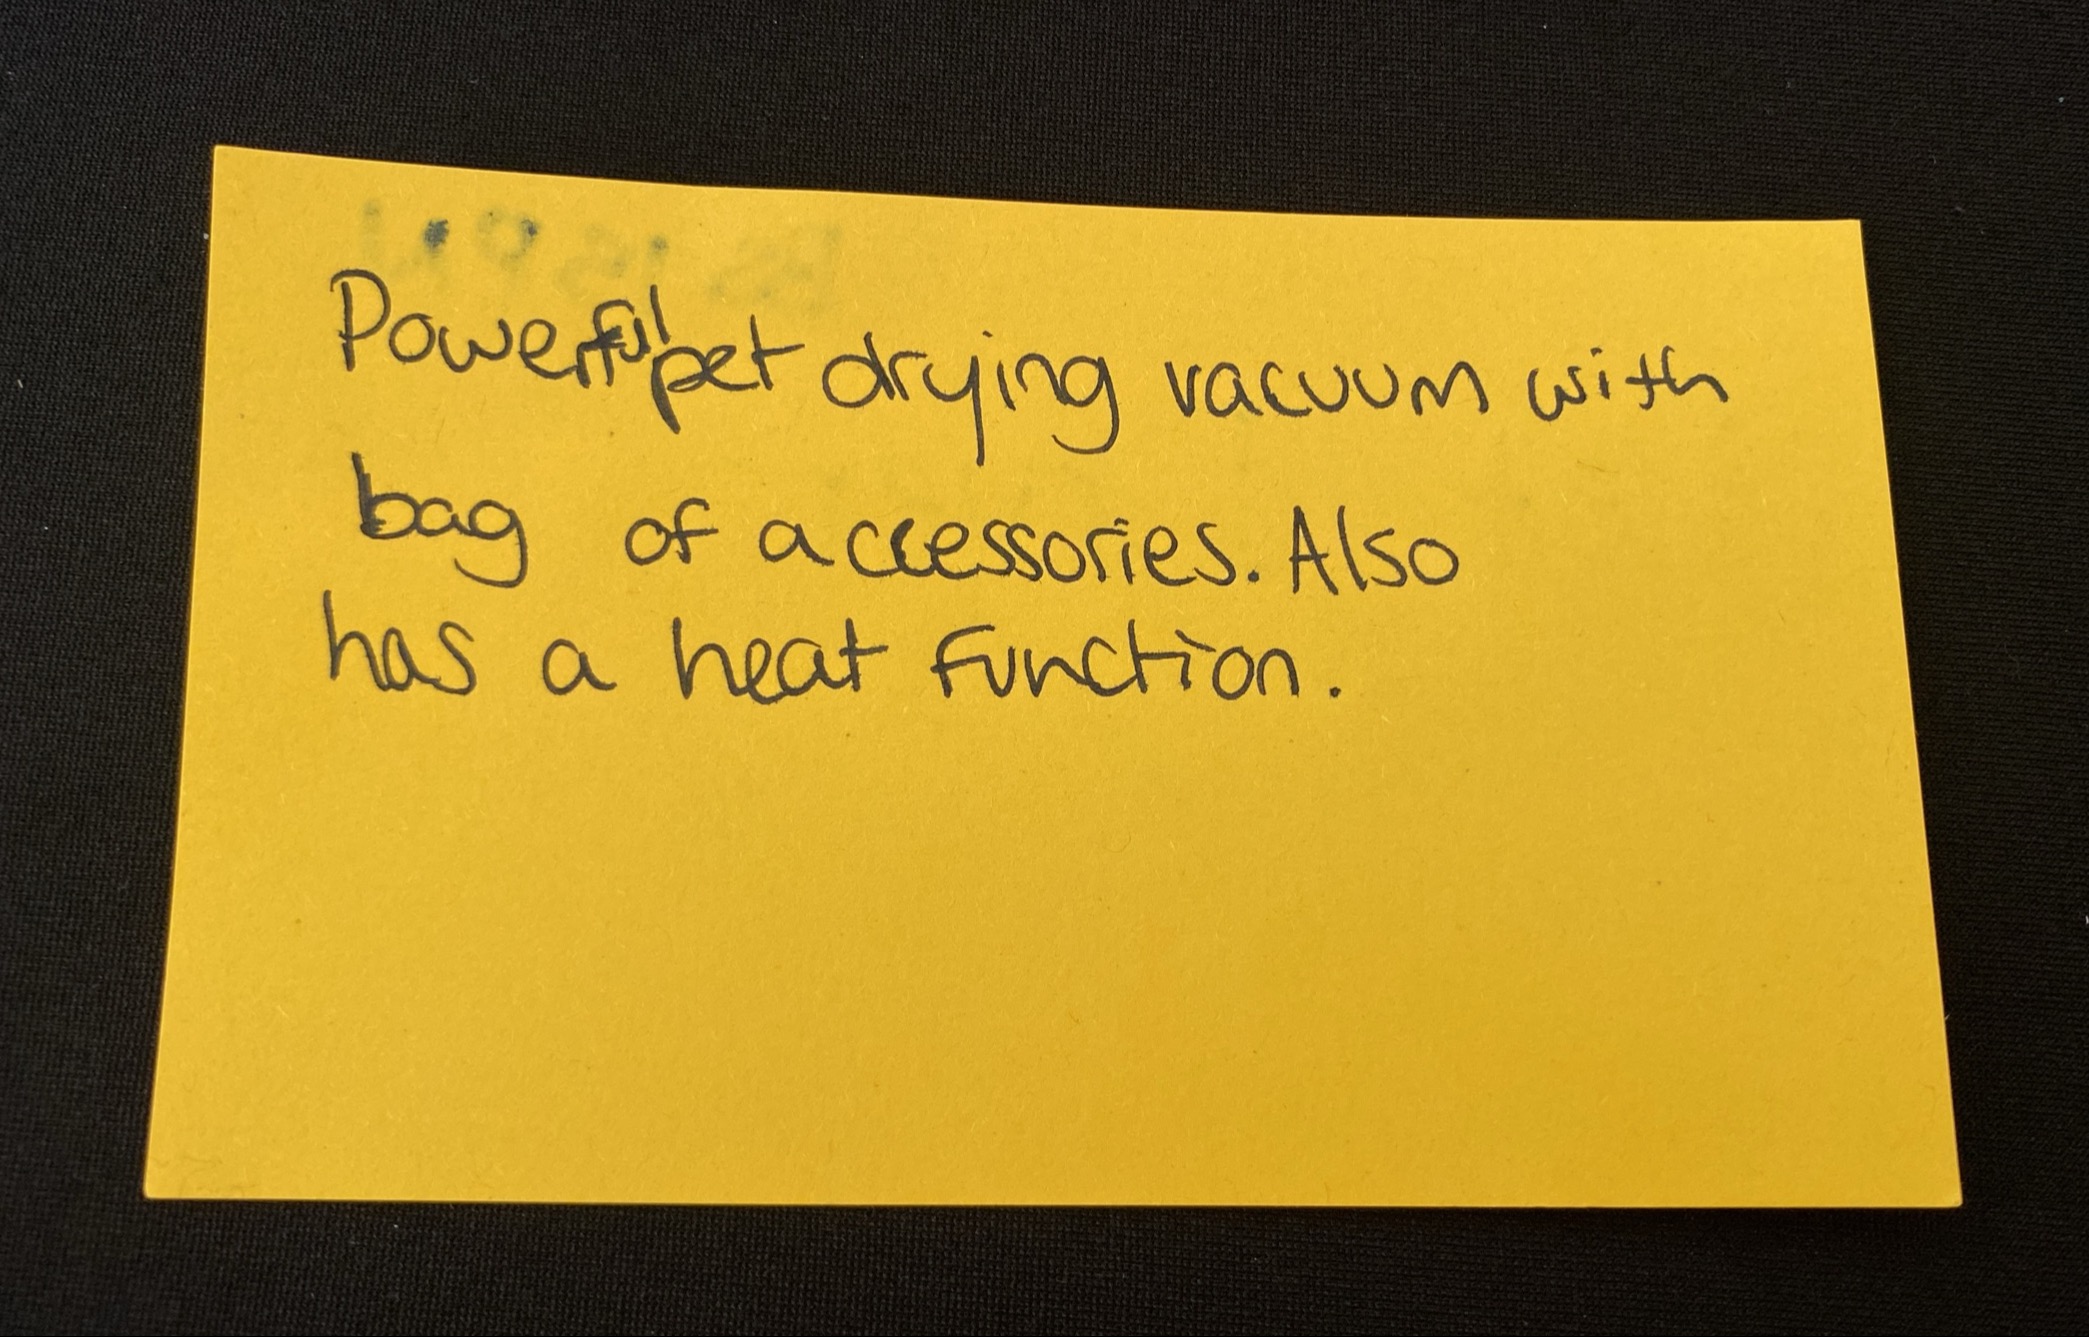 Powerful pet drying vacuum with
bag of accessories. Also
has a heat function.